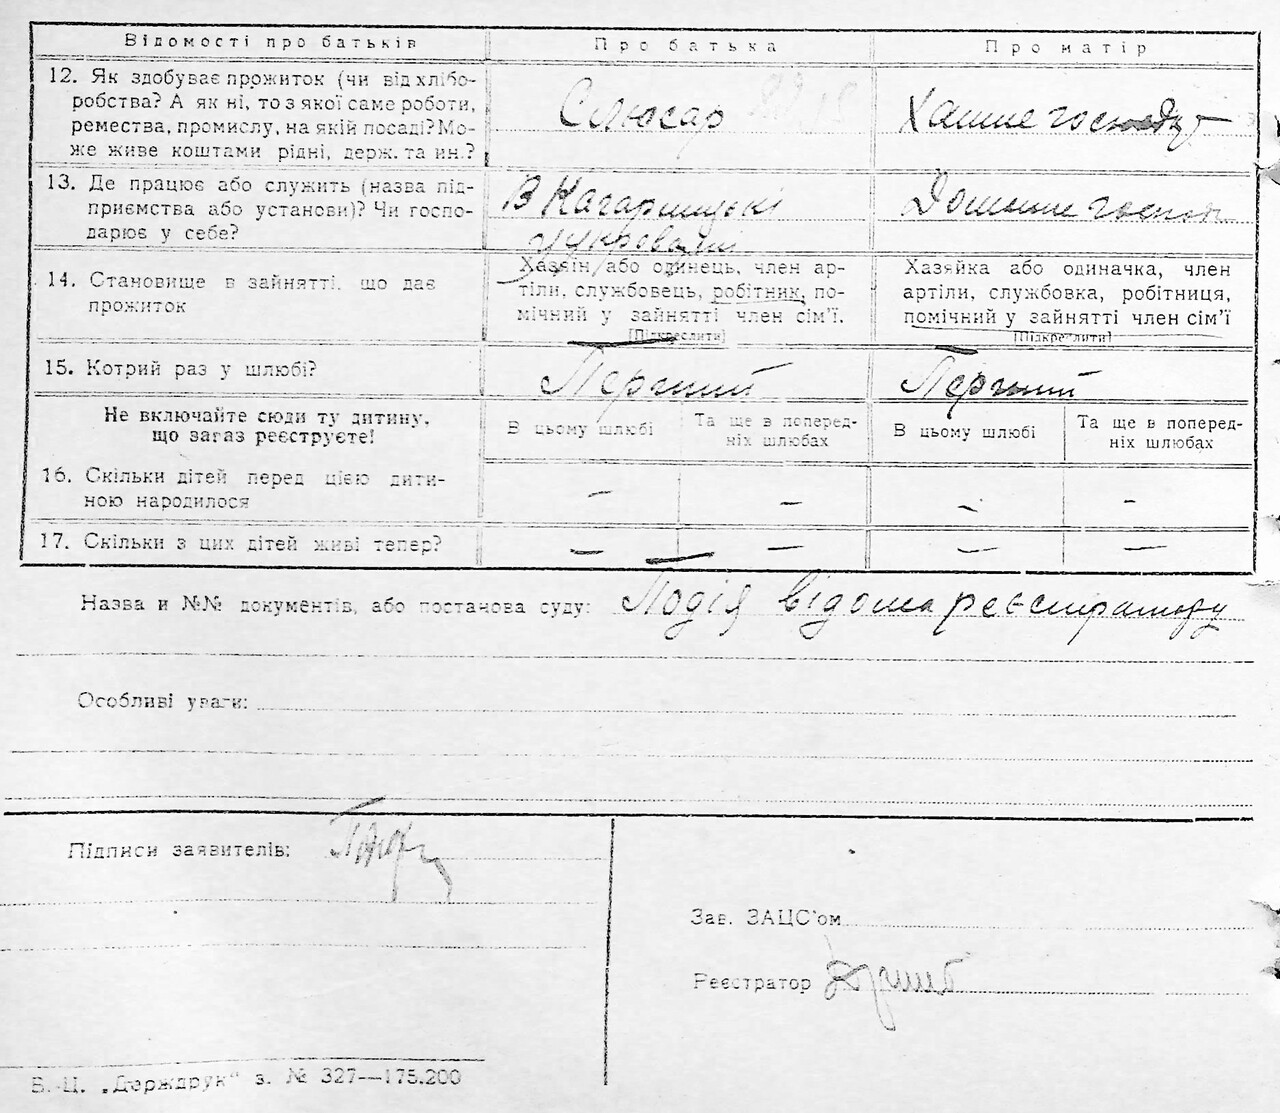 Відомості про батьків
Про батька
Про матір
12. Як здобуває прожиток (чи від хлібо-
робства? А як ні, то з якої саме роботи,
ремества, промислу, на якій посаді? Мо-
же живе коштами рідні, держ. та ин.?
Слюсар
Хатнє господ
13. Де працює або служить (назва під-
приємства або установи)? Чи госпо-
дарює у себе?
В Кагарлицькі
цукроварні
Домашнє господ
14. Становище в зайнятті, що дає
прожиток
Хазяїн або одинець, член ар-
тіли, службовець, робітник, по-
мічний у зайнятті член сім'ї.
[Підкреслити]
Хазяйка або одиначка, член
артіли, службовка, робітниця,
помічний у зайнятті член сім'ї
[Підкреслити]
15. Котрий раз у шлюбі?
Перший
Перший
Не включайте сюди ту дитину,
що зараз реєструєте!
В цьому шлюбі
Та ще в поперед-
ніх шлюбах
В цьому шлюбі
Та ще в поперед-
ніх шлюбах
16. Скільки дітей перед цією дити-
ною народилося
— — — —
17. Скільки з цих дітей живі тепер?
— — — —
Назва и №№ документів, або постанова суду: Подія відома реєстратору
Особливі уваги:
Підписи заявителів:
Зав. ЗАЦС'ом
Реєстратор
В.-Ц. „Держдрук“ з. № 327—175.200